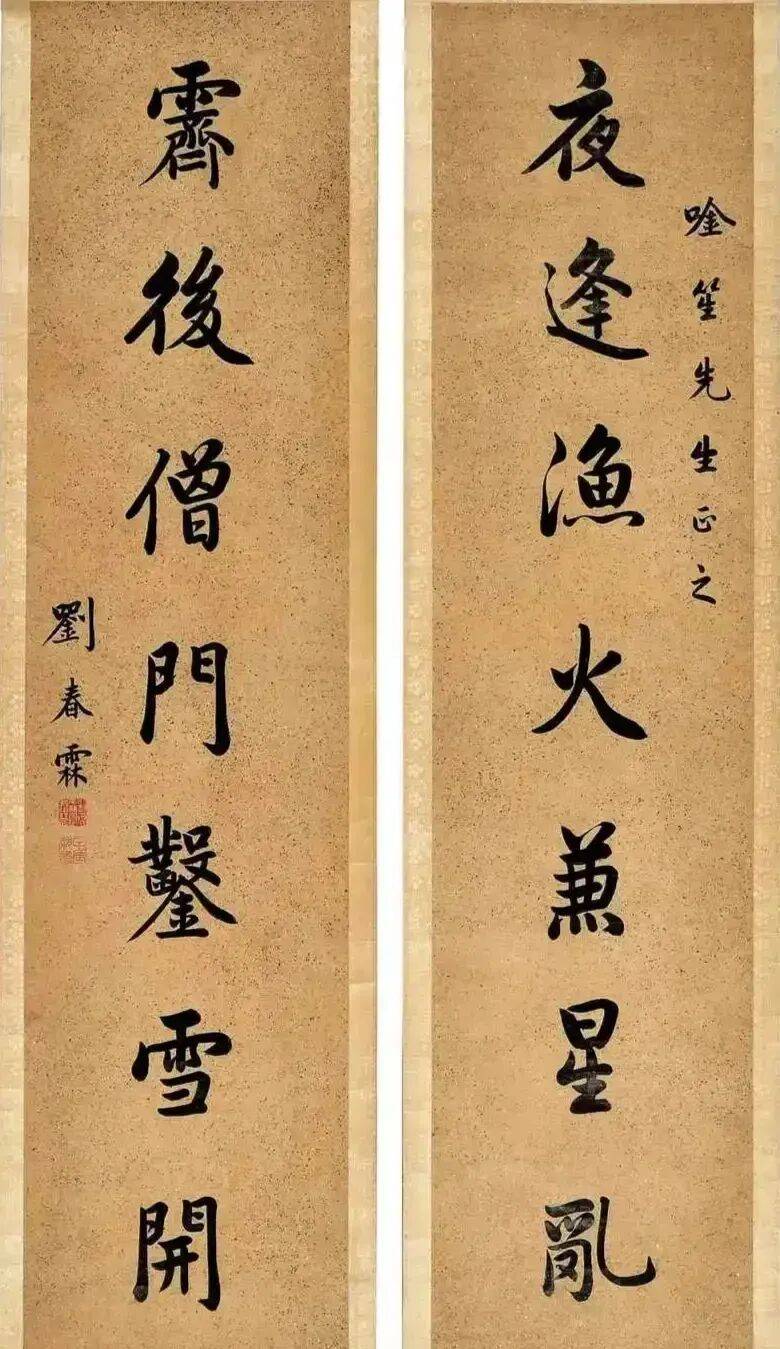 夜逢漁火兼星亂
唫笙先生正之
霽後僧門鑿雪開
劉春霖